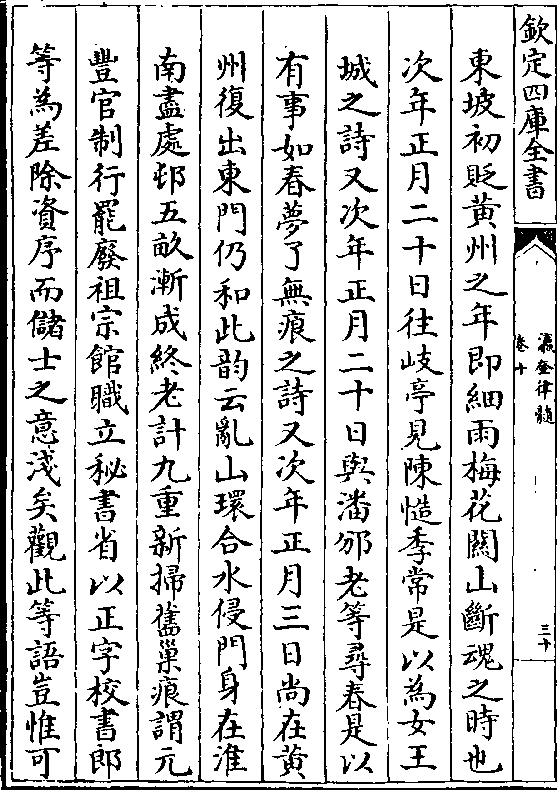 欽定四庫全書
瀛奎律髓
卷十
三十
東坡初貶黃州之年即細雨梅花關山斷魂之時也
次年正月二十日往岐亭見陳慥季常是以為女王
城之詩又次年正月二十日與潘邠老等尋春是以
有事如春夢了無痕之詩又次年正月三日尚在黃
州復出東門仍和此韵云亂山環合水侵門身在淮
南盡處邨五畝漸成終老計九重新掃舊巢痕謂元
豐官制行罷廢祖宗館職立秘書省以正字校書郎
等為差除資序而儲士之意淺矣觀此等語豈惟可